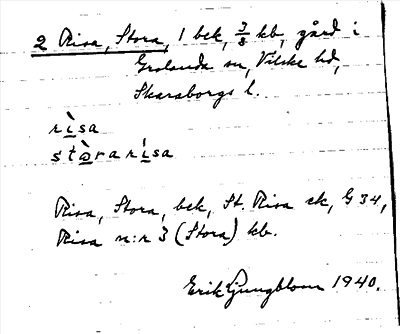 2 Risa, Stora, 1 bek, 3/8 kb, gård i
Grolanda sn, Vilske hd,
Skaraborgs l.
rìsa
stòrarísa
Risa, Stora, bek, St. Risa ek, G 34,
Risa n:r 3 (Stora) kb.
Erik Ljungblom 1940.